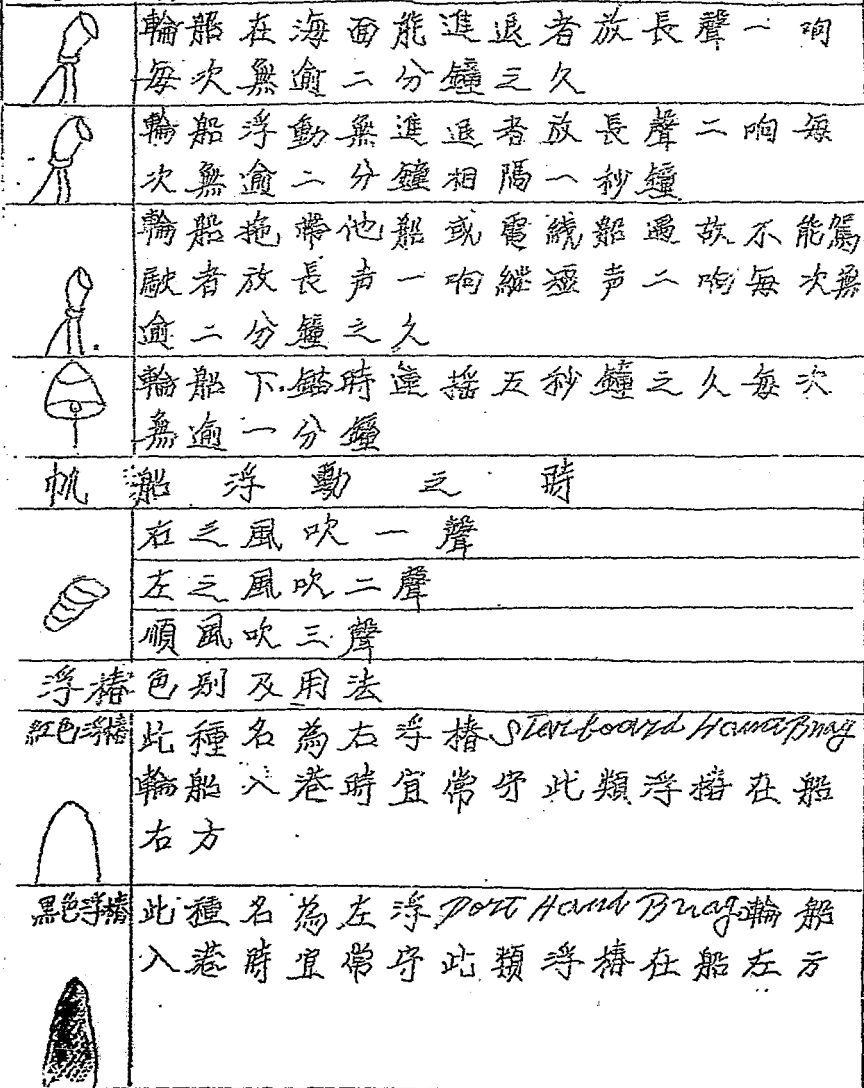 輪船在海面能進退者放長聲一响
每次無逾二分鐘之久
輪船浮動無進退者放長聲二响每
次無逾二分鐘相隔一秒鐘
輪船拖帶他船或電繞船過故不能駕
駛者放長声一响縱短声二响每次無
逾二分鐘之久
輪船下錨時連搖五秒鐘之久每次
無逾一分鐘
帆船浮動之時
右之風吹一聲
左之風吹二聲
順風吹三聲
浮樁色別及用法
紅色浮樁
此種名為右浮樁Starboard Hand Buag
輪船入港時宜常守此類浮樁在船
右方
黑色浮樁
此種名為左浮Port Hand Buag輪船
入港時宜常守此類浮樁在船左方